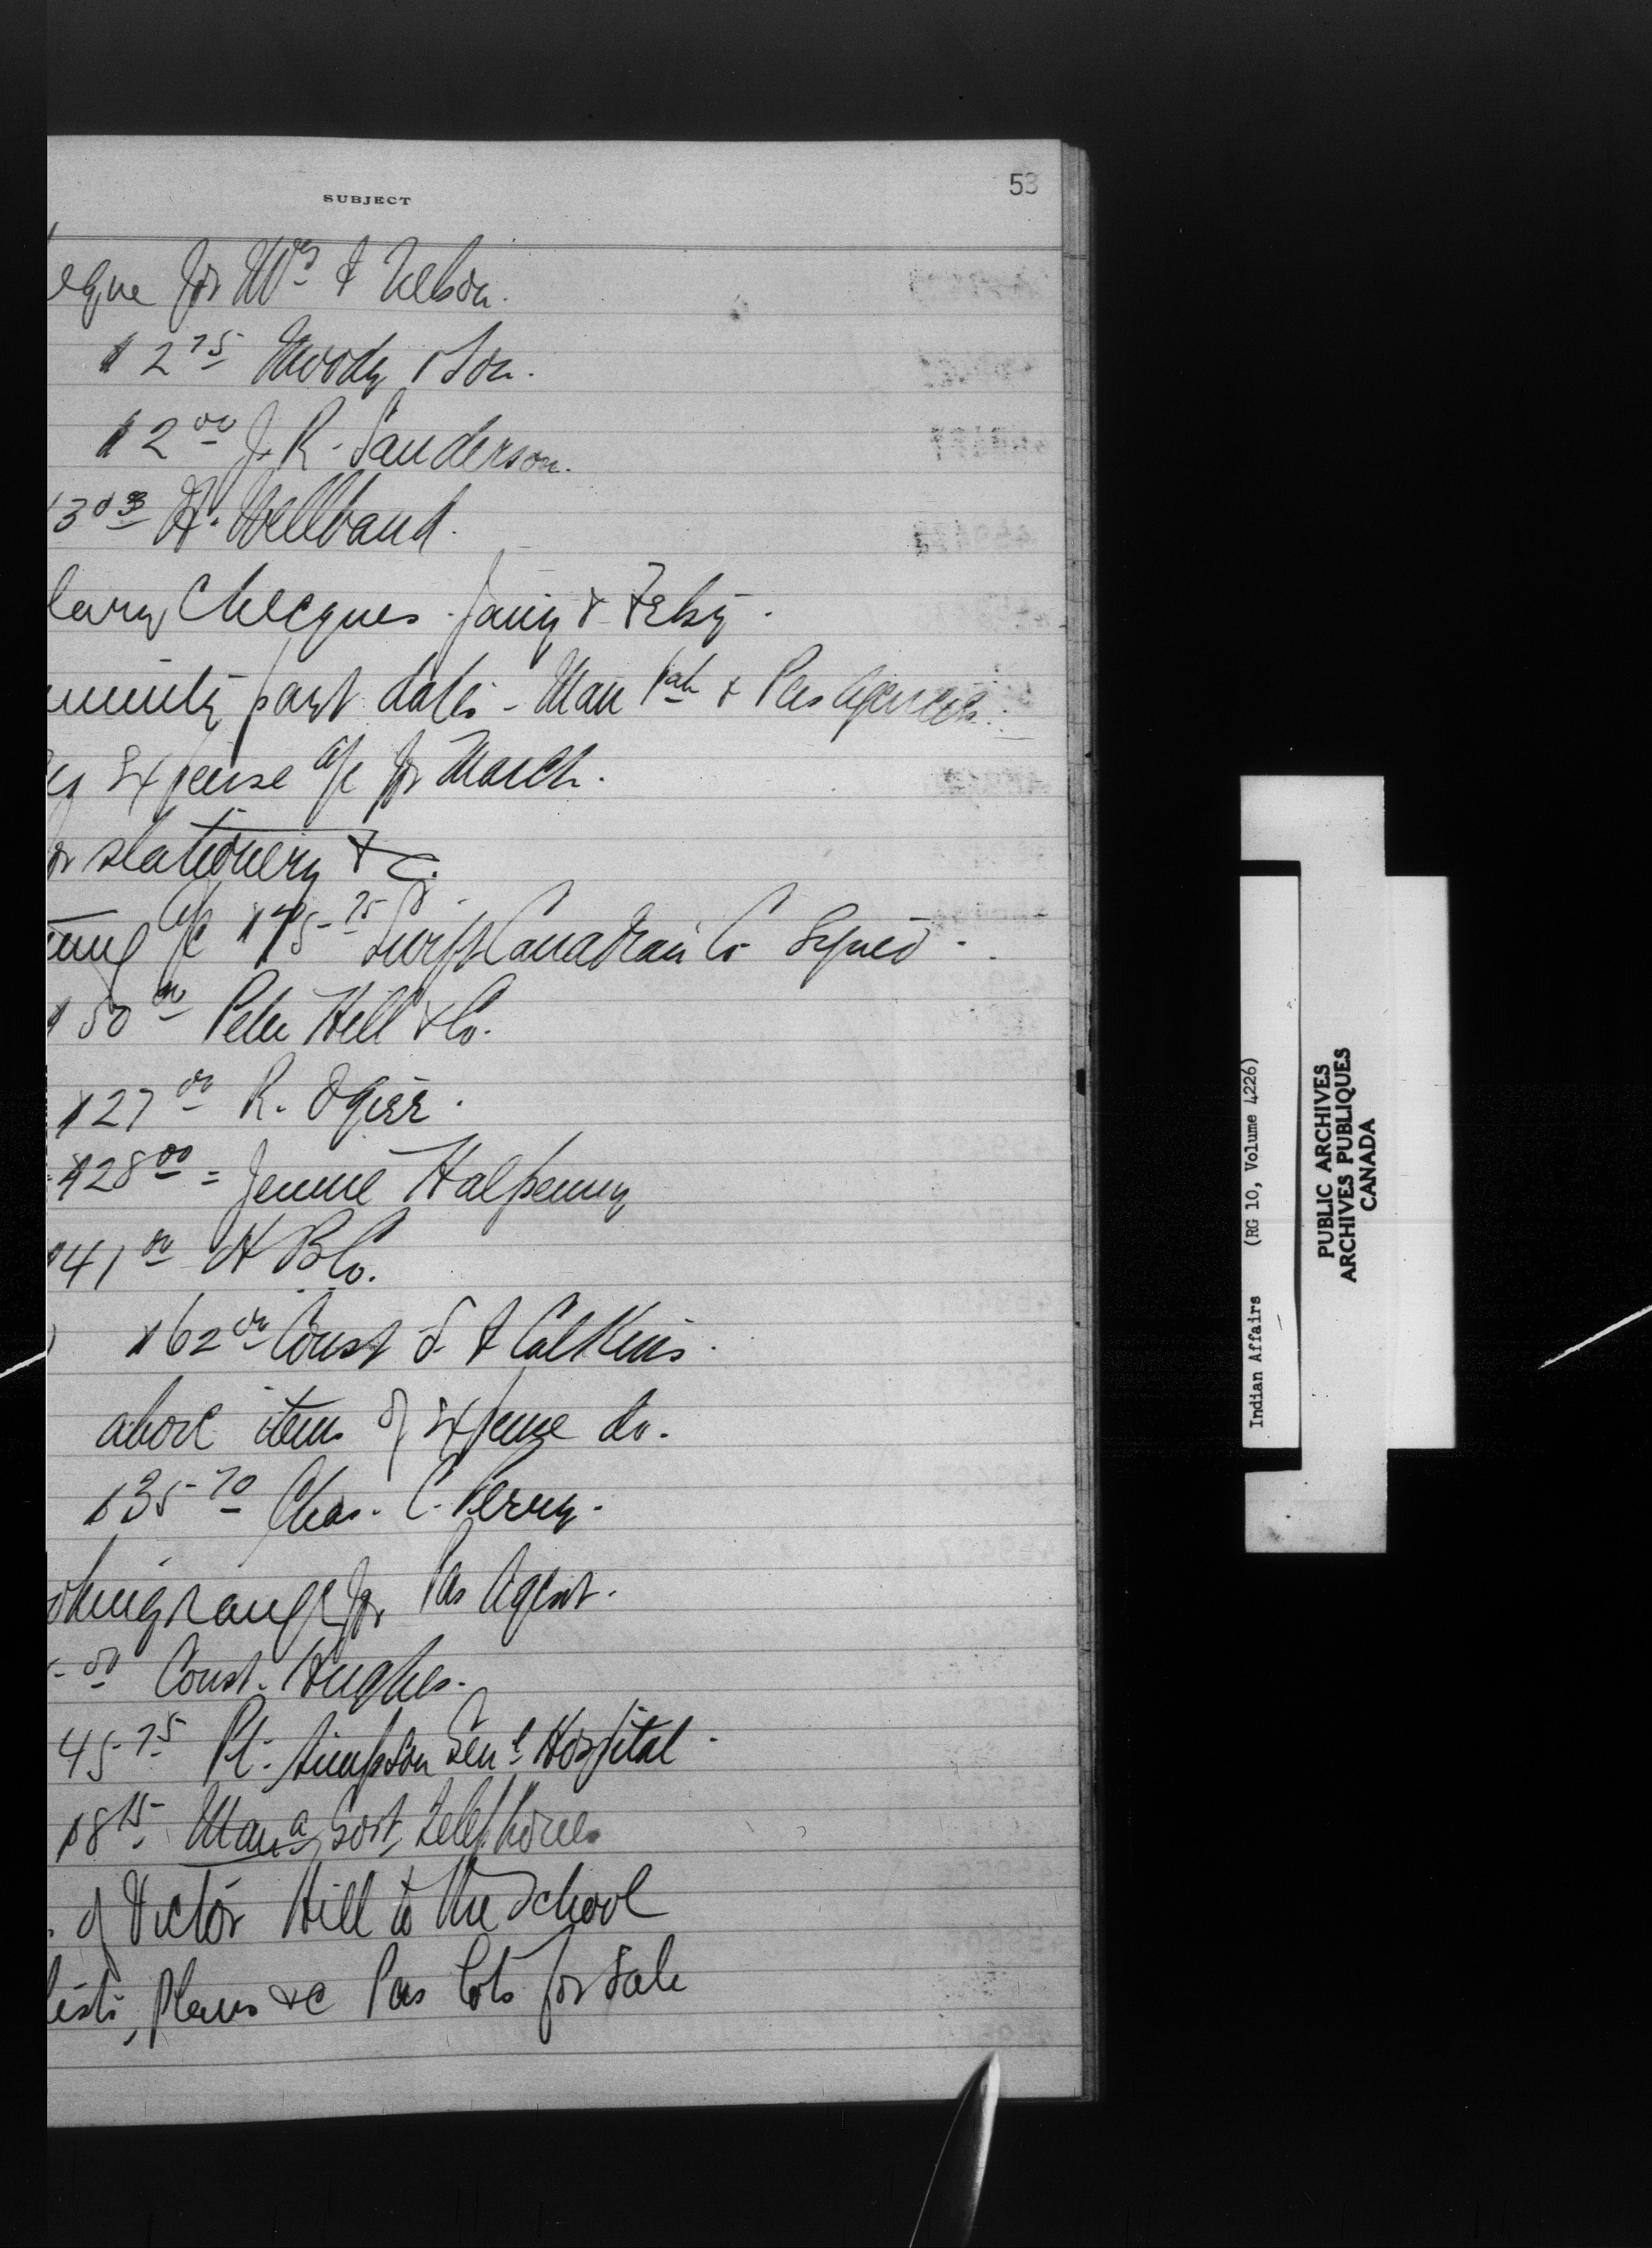 53
SUBJECT
eque for Wm & Nelson.
$2 75 Moody & Son.
$2 00 J. R. Sanderson.
30 33 H. Wellband.
lary Checques. Jany & Feby.
part dates - Man Sask & Pas Agencies.
Expense a/c for March.
or stationery &c.
a/c $45 75 Swift Canadian Co Signed.
$50 00 Peter Hill & Co.
$27 00 R. Ogier.
$28 00 = Jennie Halpenny
$41 00 H B Co.
$62 00 Const Calkins.
above item of Expense do.
$35 70 Chas. C. Perry.
range for Pas Agent.
00 Const. Hughes.
45 75 Pt. Simpson Genl Hospital.
$8 15 Mana Govt Telephones
of Victor Hill to the School
lists, Plans &c Pas lots for Sale
Indian Affairs (RG 10, Volume 4226)
PUBLIC ARCHIVES
ARCHIVES PUBLIQUES
CANADA